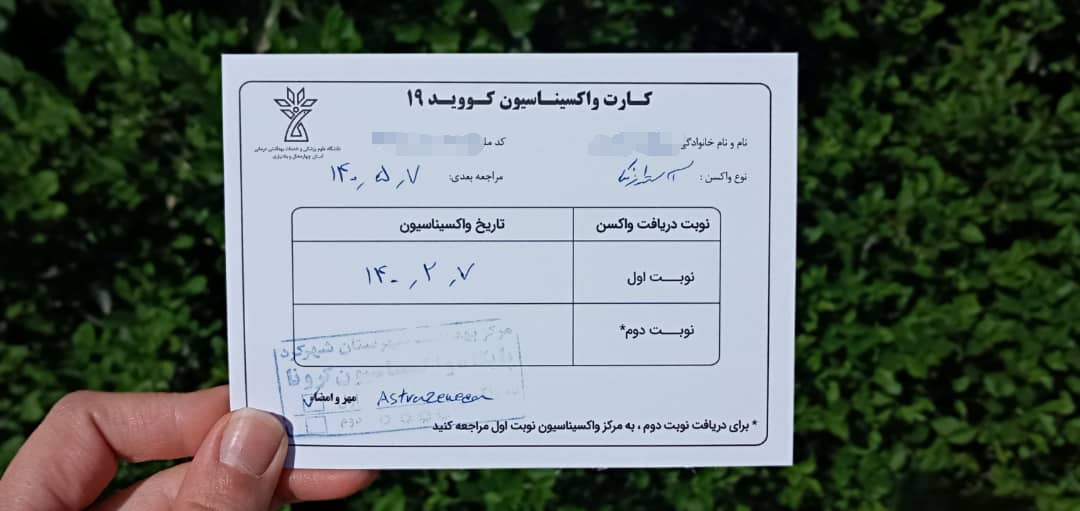 کارت واکسیناسیون کووید ۱۹
دانشگاه علوم پزشکی و خدمات بهداشتی درمانی
استان چهارمحال و بختیاری
نام و نام خانوادگی
کد مل
نوع واکسن : آسترازنکا
مراجعه بعدی: ۱۴۰۰٫۵٫۷
نوبت دریافت واکسن
تاریخ واکسیناسیون
نوبت اول
۱۴۰۰٫۲٫۷
نوبت دوم*
مرکز شهرستان شهرکرد
واکسیناسیون کرونا
مهر و امضاء
AstraZeneca
دوم
* برای دریافت نوبت دوم ، به مرکز واکسیناسیون نوبت اول مراجعه کنید